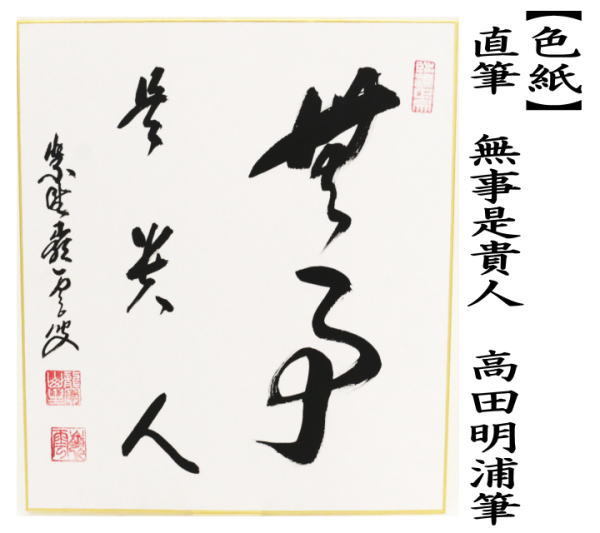 【色紙】
直筆 無事是貴人 高田明浦筆
無事
是貴人
紫野